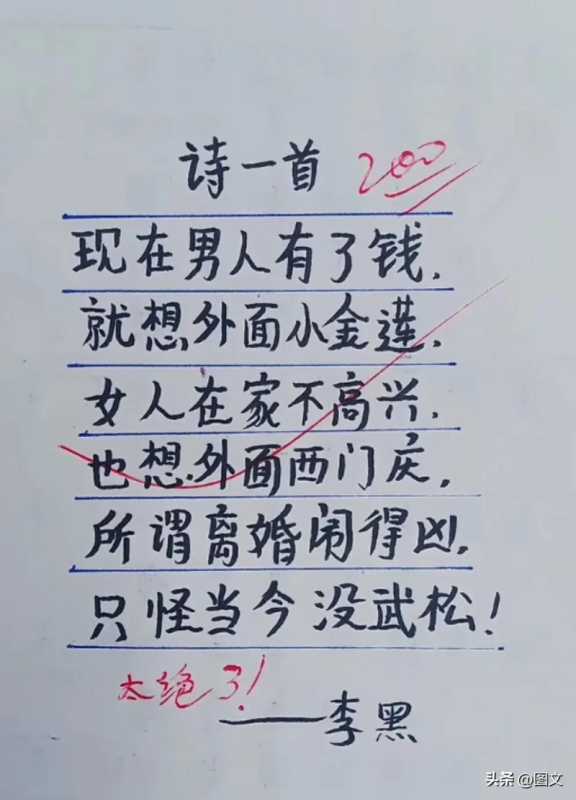 诗一首 200
现在男人有了钱，
就想外面小金莲，
女人在家不高兴，
也想外面西门庆，
所谓离婚闹得凶，
只怪当今没武松！
太绝了！
——李黑
头条 @图文